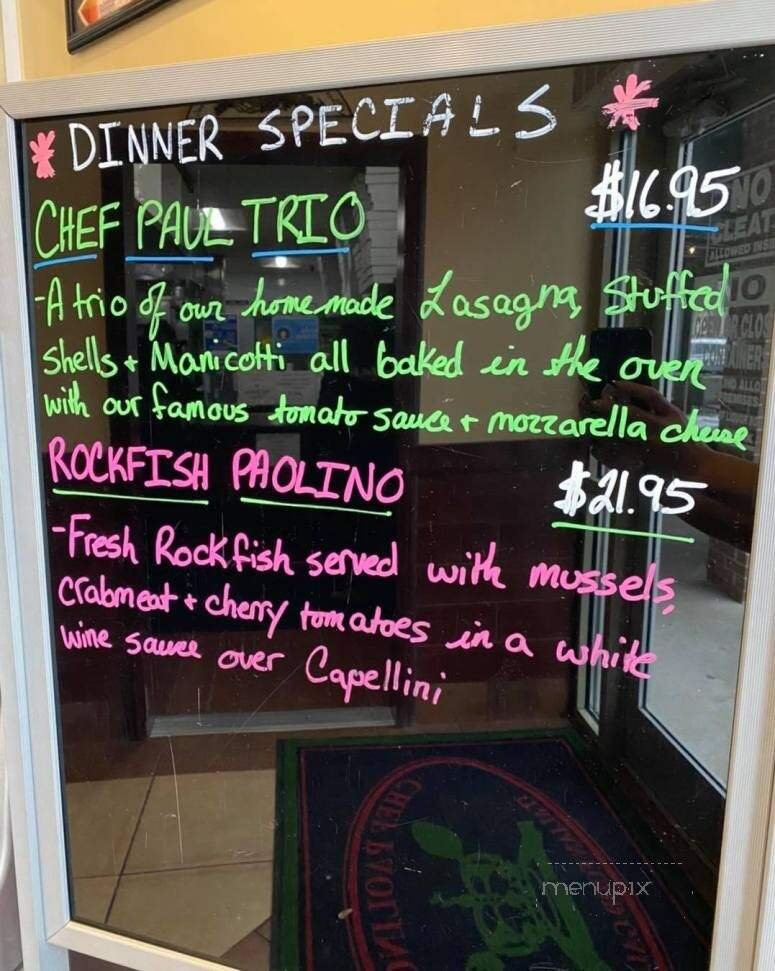 * DINNER SPECIALS *
CHEF PAUL TRIO $16.95
-A trio of our homemade Lasagna, Stuffed
Shells + Manicotti all baked in the oven
with our famous tomato sauce + mozzarella cheese
ROCKFISH PAOLINO $21.95
-Fresh Rockfish served with mussels,
crabmeat + cherry tomatoes in a white
wine sauce over Capellini
NO
CLEAT
ALLOWED INS
NO
CHEF PAOLINO
menupix